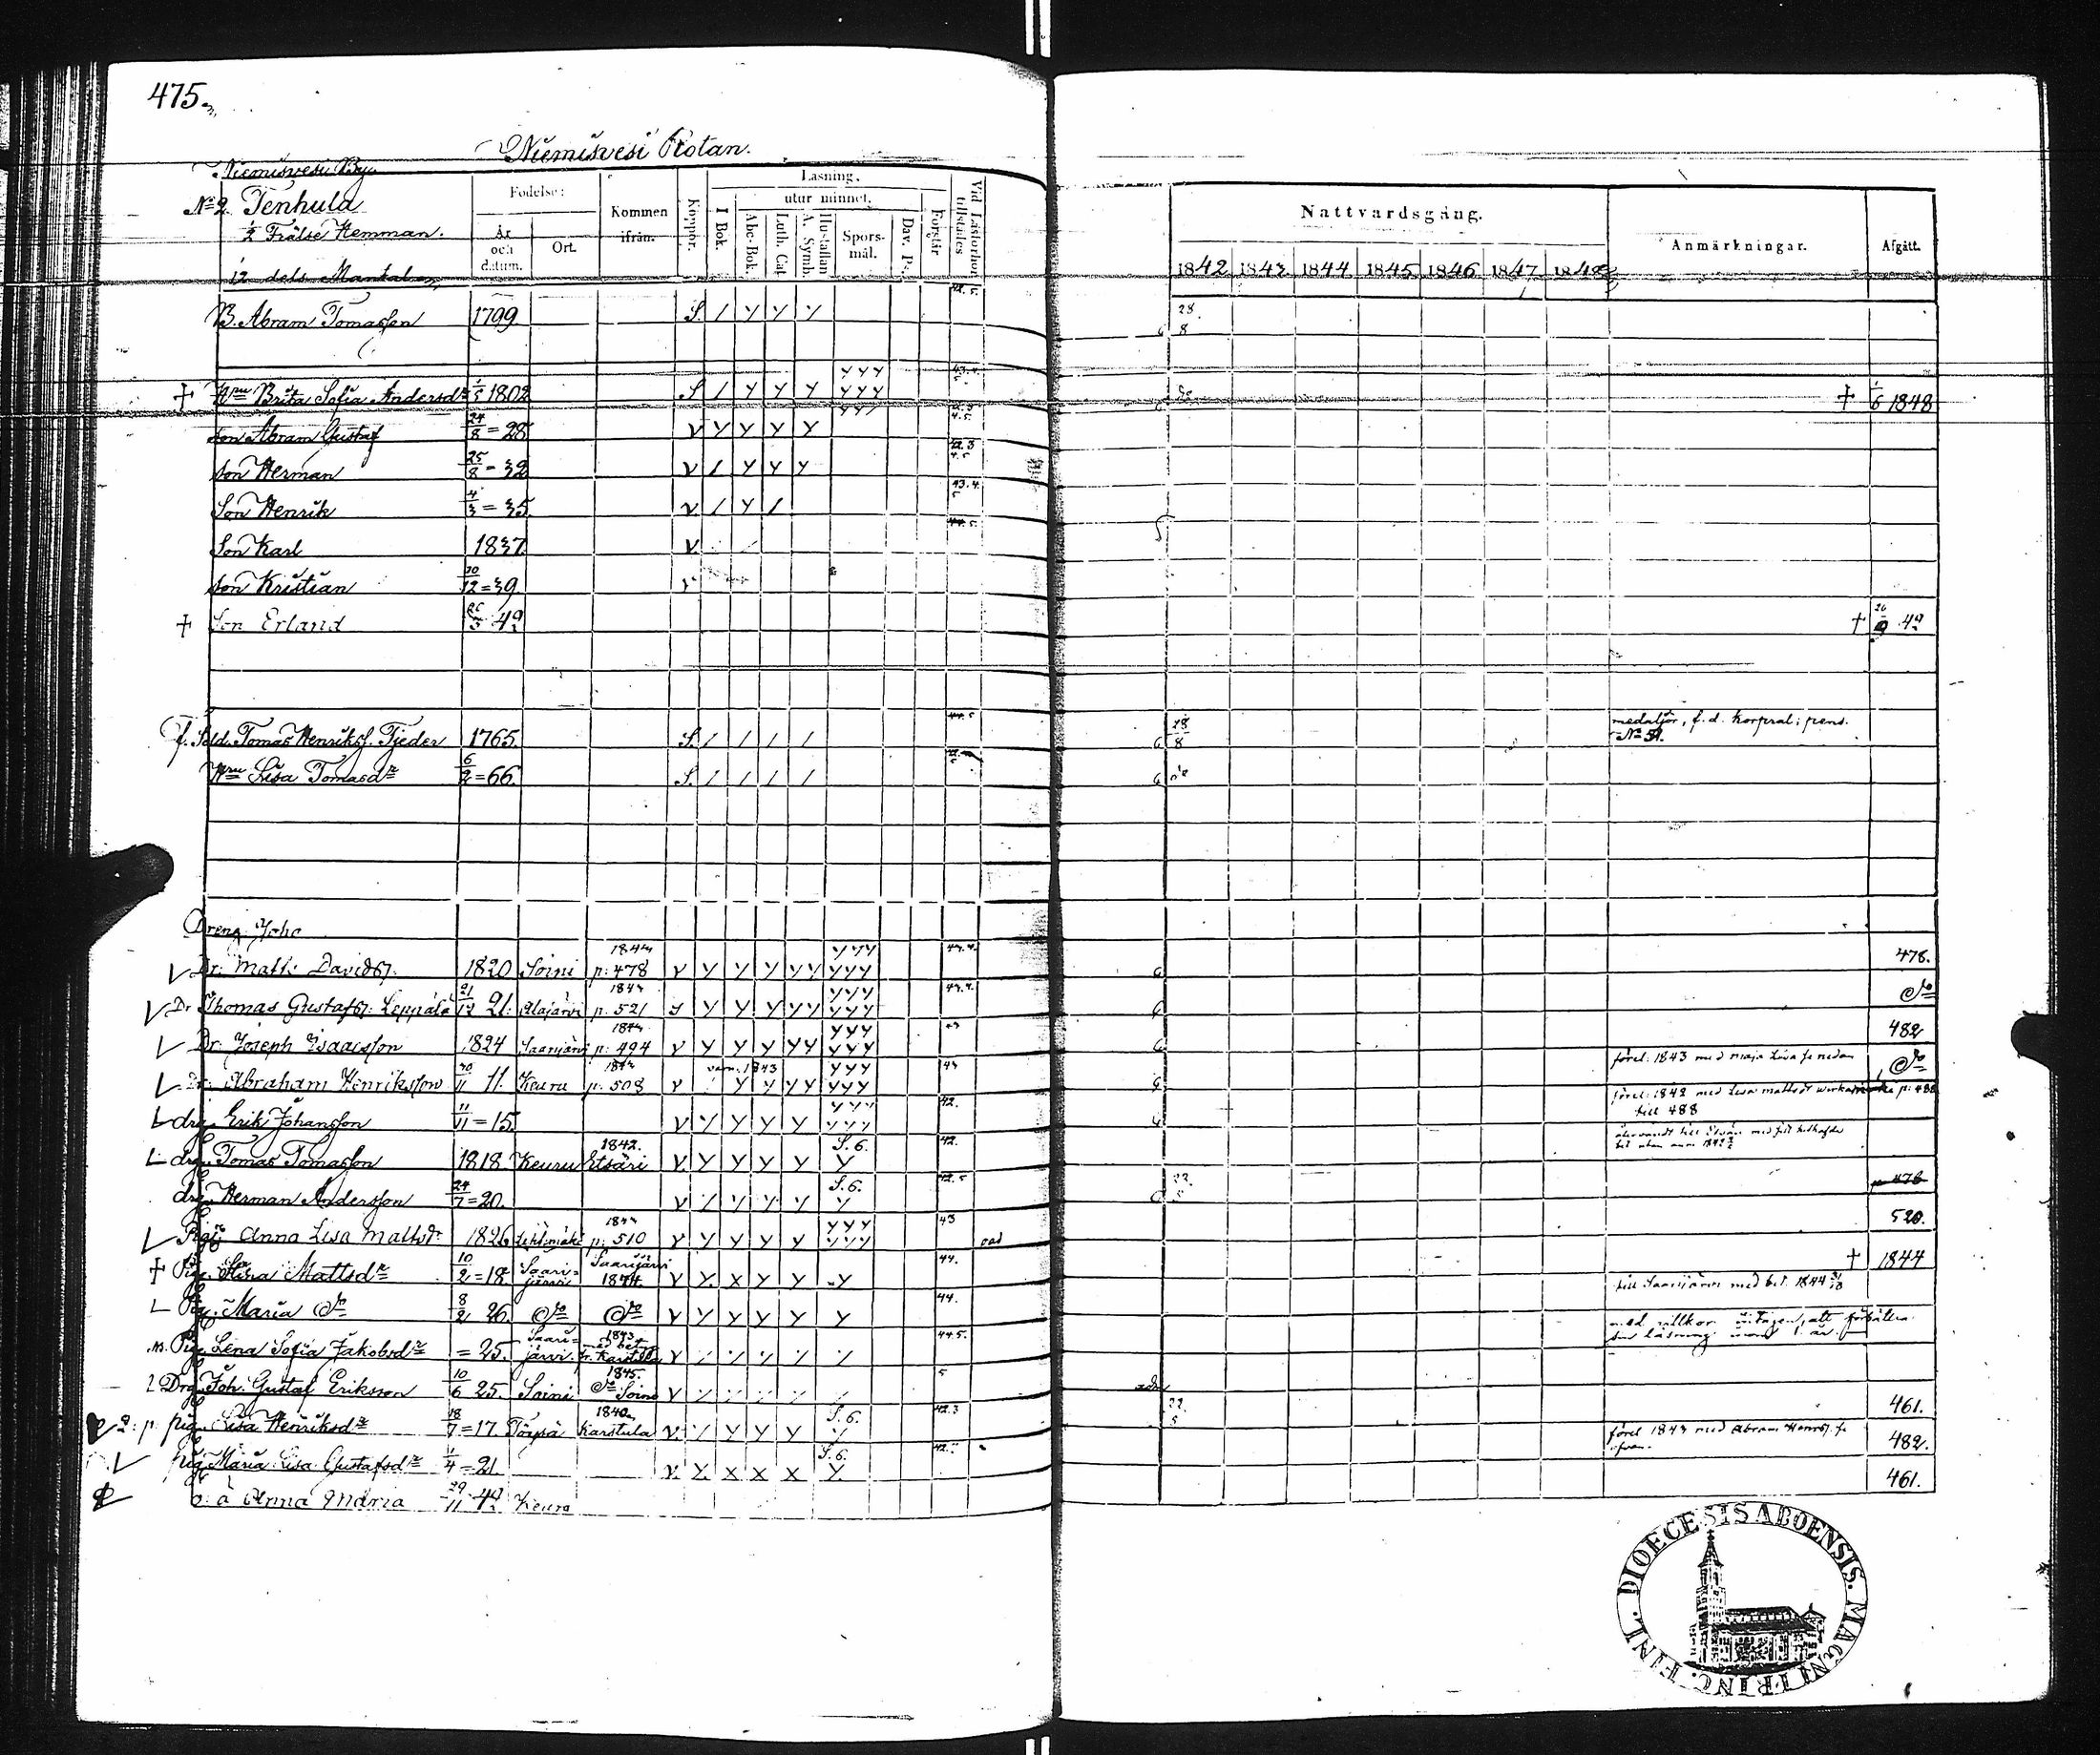 475.
Niemisvesi Rotan.
Niemisvesi By.
No 2 Tenhula
½ Frälse Hemman.
12 dels Mantal
Födelse:
År och datum.
Ort.
Kommen ifrån.
Koppor.
Läsning.
utur minnet.
I Bok.
Abc-Bok.
Luth. Cat.
A. Symb.
Hustaflan
Spors-mål.
Dav. Ps.
Förstår
Vid Läsförhör tillstädes
Nattvardsgång.
1842 1843 1844 1845 1846 1847 1848
Anmärkningar.
Afgått.
B. Abram Tomasson 1799 S. / Y Y Y 28/8
Hru Brita Sofia Andersdr 1802 S / Y Y Y YYY YYY + 1/6 1848
son Abram Gustaf 24/8 = 28 v Y Y Y Y
son Herman 25/8 = 32 v / Y Y Y
Son Henrik 4/3 = 35 v / Y / 43.4.5
Son Karl 1837 v
son Kristian 20/12 = 39 v
+ Son Erland 42 + 42
f. Sold. Tomas Henrikss. Tjeder 1765. S. / / / / 28/8 medaljör, f.d. korpral; pens. No 51.
Hru Lisa Tomasdr 6/2 = 66. S. / / / / do
Dreng Joho
Dr. Matts Davidss. 1820 Soini p: 478 v Y Y Y YY YYY YYY 478.
Dr Thomas Gustafss. Leppälä 21/12 21. Alajärvi p. 521 Y Y Y Y YY YYY YYY do
Dr. Joseph Isaacsson 1824 Saarijärvi p: 494 v Y Y Y YY YYY YYY 43 482
Dr. Abraham Henriksson 20/11 11. Keuru p: 508 v Y Y YY YYY YYY 43 förel: 1843 med Maja Lisa fr nedan do
drg. Erik Johansson 11/11 = 15. v Y Y Y Y YYY YYY 42. förel: 1842 med Lisa Mattsdr till 488
drg. Tomas Tomasson 1818 Keuru 1842. Etsäri v. Y Y Y Y S.6. Y 42.
drg. Herman Andersson 24/7 = 20. v / Y Y Y S.6. Y 42.5 22/5 478
Pig: Anna Lisa Mattsdr 1826 Lehtimäki p: 510 v Y Y Y Y YYY YYY 43 520.
+ Pig. Stina Mattsdr 10/2 = 18 Saarijärvi Saarijärvi 1844. v Y X Y Y Y 44. + 1844
Pig. Maria do 8/2 26. do do v Y Y Y Y Y 44. till Saarijärvi med bet. 1844
Pig. Lena Sofia Jakobsdr = 25. Saarijärvi 1843 med bet fr. Karstula v 44.5. med vilkor att förbättra sin läsning inom 1 år.
Drg. Joh. Gustaf Eriksson 10/6 25. Soini 1845. do Soini v 5
2: p: pig. Lisa Henriksdr 18/7 = 17. Töysä 1840. Karstula v. / Y Y Y S.6. Y 42.3 22/5 461.
pig. Maria Lisa Gustafsdr 1/4 = 21. v. Y. X X X S.6. Y förel 1843 med Abram Henrss. 482.
o. ä Anna Maria 29/11 Keuru 461.
DIOECESIS ABOENSIS. MAGNI PRINC. FINL.